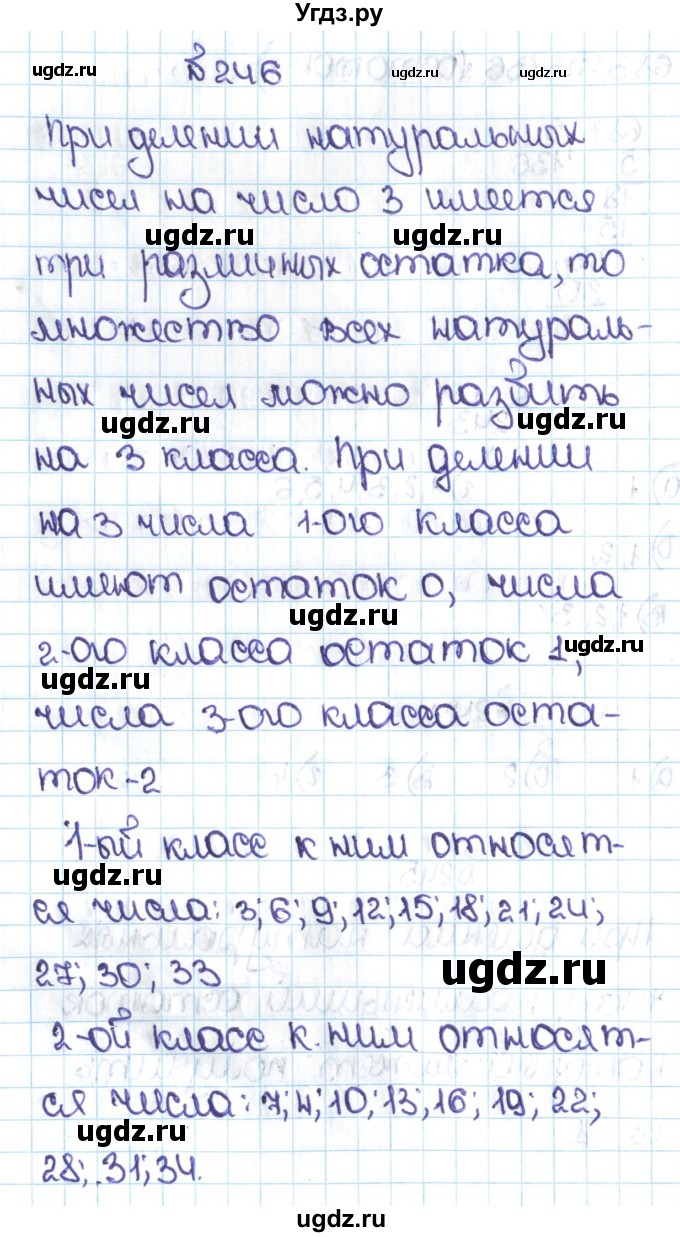 Угдз.ру
ugdz.ru № 246 ugdz.ru ugdz.ru
При делении натуральных
чисел на число 3 имеется
ugdz.ru ugdz.ru
три различных остатка, то
множество всех натураль-
ных чисел можно разбить
ugdz.ru ugdz.ru
на 3 класса. При делении
на 3 числа 1-ого класса
имеют остаток 0, числа
ugdz.ru
2-ого класса остаток 1, ugdz.ru
ugdz.ru
числа 3-ого класса оста-
ток-2
1-ый класс к ним относят-
ugdz.ru
ся числа: 3; 6; 9; 12; 15; 18; 21; 24;
27; 30; 33 ugdz.ru
2-ой класс к ним относят-
ся числа: 7; 4; 10; 13; 16; 19; 22;
ugdz.ru
28; 31; 34.
ugdz.ru